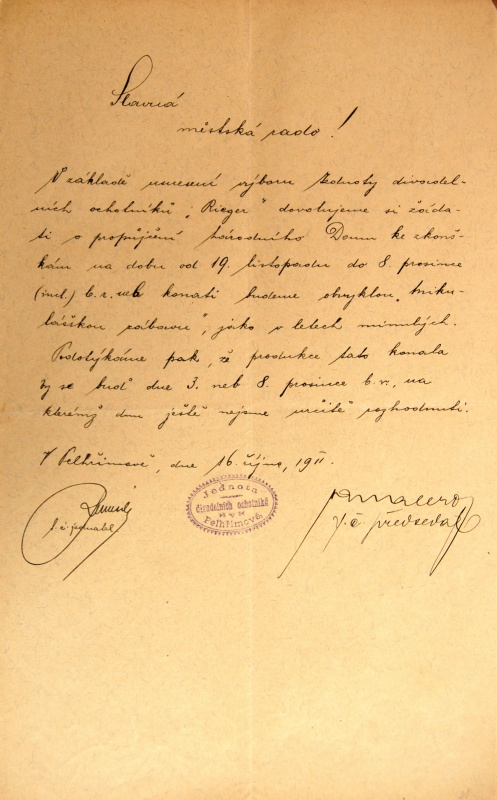 Slavná
městská rado!
V základě usnesení výboru Jednoty divadel-
ních ochotníků „Rieger“ dovolujeme si žáda-
ti o propůjčení Národního Domu ke zkouš-
kám na dobu od 19. listopadu do 8. prosince
(incl.) b.r. neb konati budeme obvyklou „miku-
lášskou zábavu“, jako v letech minulých.
Podotýkáme pak, že produkce tato konala
by se buď dne 3. neb 8. prosince b.r., na
kterémž dnu ještě nejsme určitě rozhodnuti.
V Pelhřimově, dne 16. října, 1911.
t.č. jednatel
Jednota
divadelních ochotníků
v
Pelhřimově.
t.č. předseda